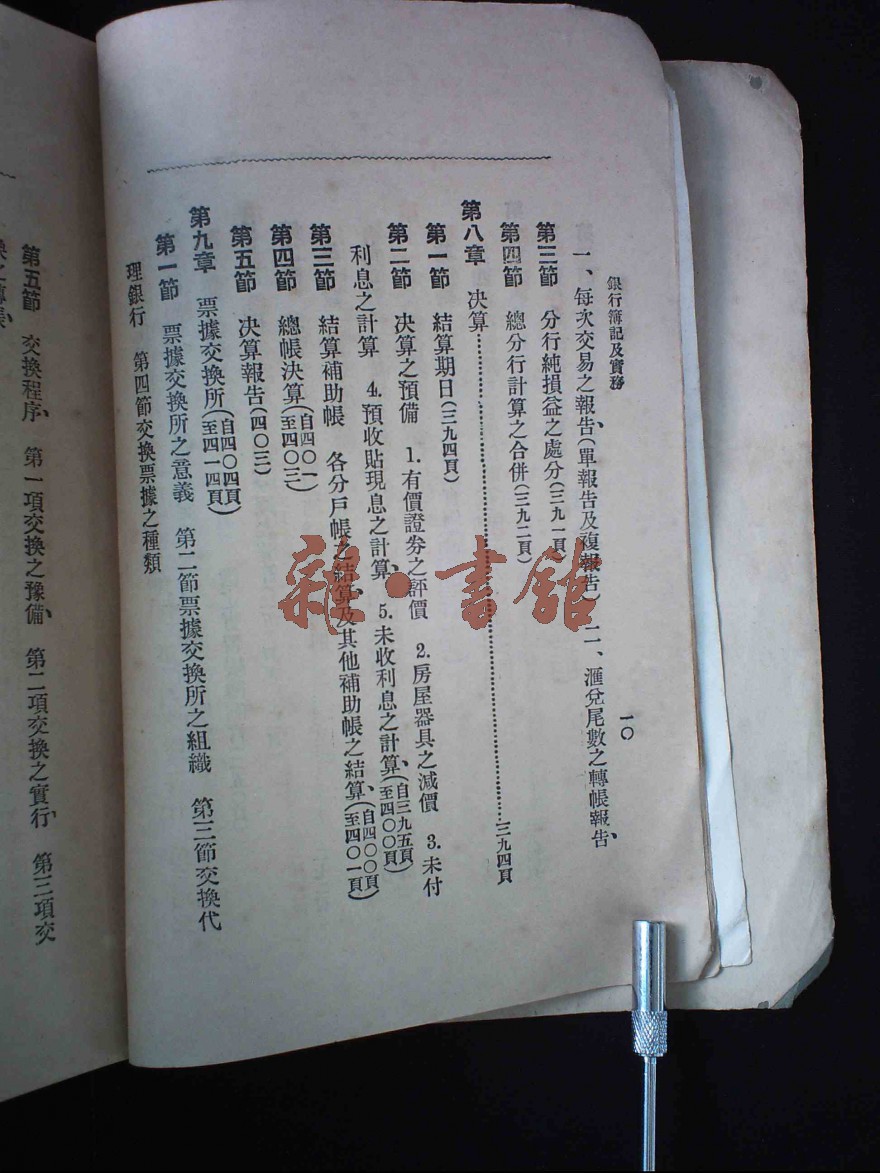 銀行簿記及實務
一〇
一、每次交易之報告(單報告及複報告) 二、滙兌尾數之轉帳報告、
第三節 分行純損益之處分(三九一頁)
第四節 總分行計算之合併(三九二頁)
第八章 決算……三九四頁
第一節 結算期日(三九四頁)
第二節 決算之預備 1.有價證券之評價 2.房屋器具之減價 3.未付
利息之計算 4.預收貼現息之計算、 5.未收利息之計算、(自三九五頁至四〇〇頁)
第三節 結算補助帳 各分戶帳之結算及其他補助帳之結算、(自四〇〇頁至四〇一頁)
第四節 總帳決算(自四〇一至四〇三)
第五節 決算報告(四〇三)
第九章 票據交換所(自四〇四頁至四一四頁)
第一節 票據交換所之意義 第二節票據交換所之組織 第三節交換代
理銀行 第四節交換票據之種類
第五節 交換程序、 第一項交換之豫備、 第二項交換之實行、 第三項交
換之轉帳
雜·書館